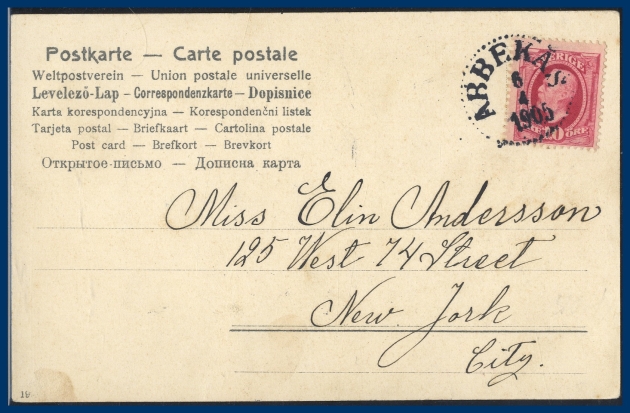 Postkarte — Carte postale
Weltpostverein — Union postale universelle
Levelező-Lap – Correspondenzkarte – Dopisnice
Karta korespondencyjna — Korespondenčni listek
Tarjeta postal — Briefkaart — Cartolina postale
Post card — Brefkort — Brevkort
Открытое-письмо — Дописна карта
ARBEKÅS
6
4
1905
SVERIGE
10 ÖRE
Miss Elin Andersson
125 West 74 Street
New York
City.
18